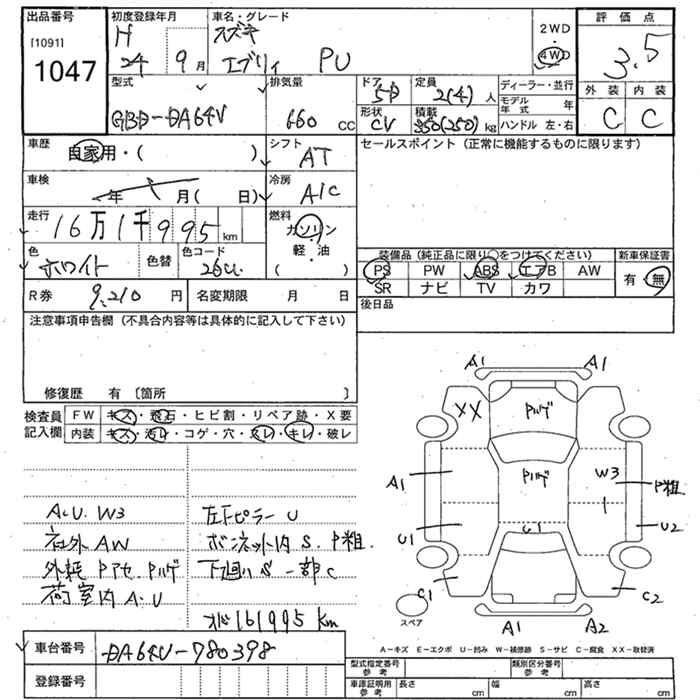 出品番号
[1091]
1047
初度登録年月
H
24 9月
車名・グレード
スズキ
エブリィ PU
2WD
・
4WD
評価点
3.5
外装 内装
C C
型式
GBD-DA64V
排気量
660 CC
ドア
5D
形状
CV
定員
2(4)人
積載
350(250)kg
ディーラー・並行
モデル年式 年
ハンドル 左・右
車歴
自家用・( )
シフト
AT
セールスポイント (正常に機能するものに限ります)
車検
年 月( 日)
冷房
A/C
走行
16万1千995km
燃料
ガソリン
軽・油
( )
色
ホワイト
色替
色コード
26U
装備品 (純正品に限り○をつけてください)
新車保証書
PS PW ABS エアB AW
有・無
SR ナビ TV カワ
R券 9,210円
名変期限 月 日
後日品
注意事項申告欄 (不具合内容等は具体的に記入して下さい)
修復歴 有 〔箇所 〕
検査員
記入欄
FW キズ・飛石・ヒビ割・リペア跡・X要
内装 キズ・汚レ・コゲ・穴・スレ・キレ・破レ
A.U. W3
社外AW
荷室内A.U
左下ピラーU
ボンネット内S. P粗
下廻りS 一部C
161995 km
A1 A1
XX
A1
W3
P粗
U1
U1
U2
C1
C2
スペア
A1 A2
A-キズ E-エクボ U-凹み W-補修跡 S-サビ C-腐食 XX-取替済
車台番号 DA64V-780398
登録番号
型式指定番号
参考
類別区分番号
参考
車庫証明用
参考
長さ cm 幅 cm 高さ cm